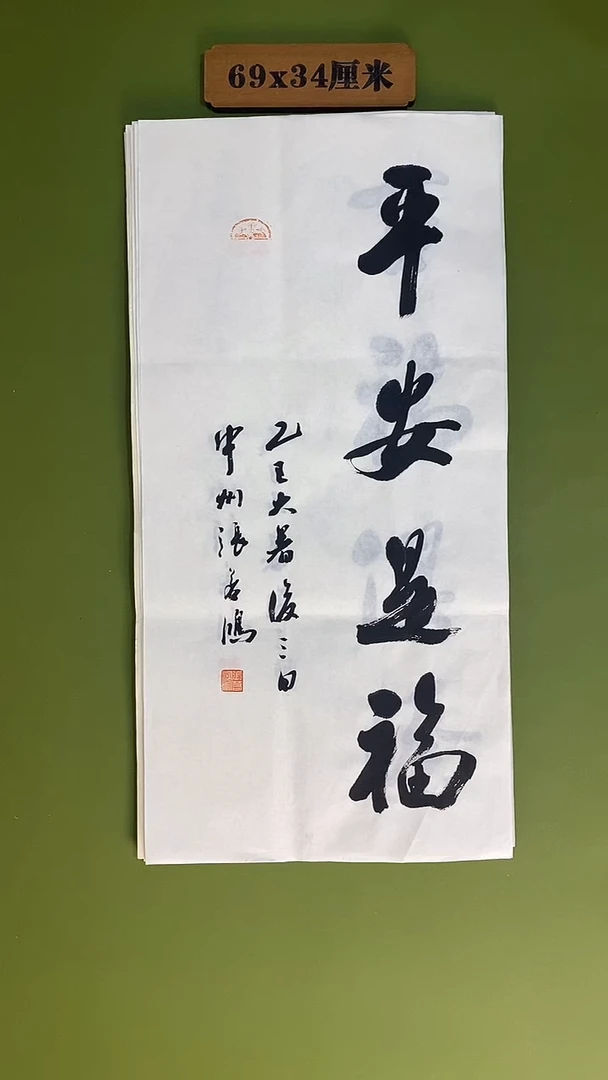 69x34厘米
平安是福
乙巳大暑後三日
中州張名鴻